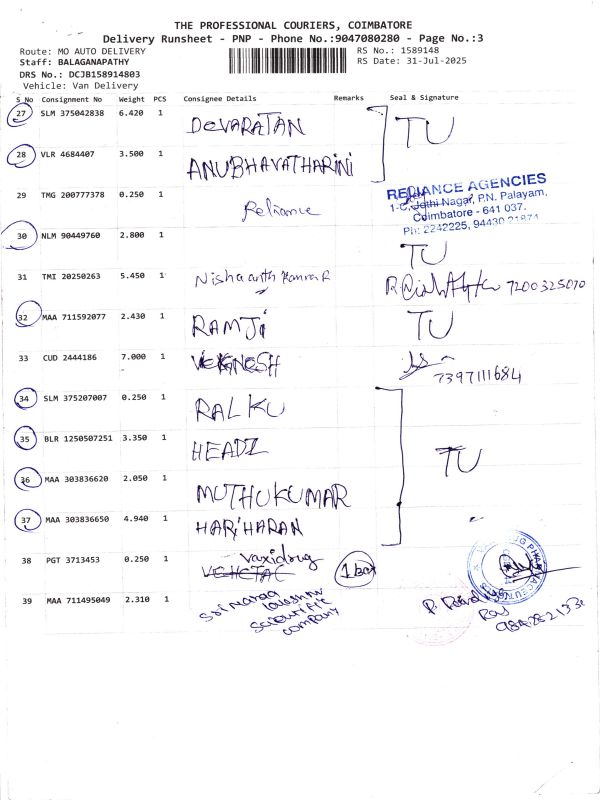 THE PROFESSIONAL COURIERS, COIMBATORE
Delivery Runsheet - PNP - Phone No.:9047080280 - Page No.:3
Route: MO AUTO DELIVERY
RS No.: 1589148
Staff: BALAGANAPATHY
RS Date: 31-Jul-2025
DRS No.: DCJB158914803
Vehicle: Van Delivery
S No Consignment No Weight PCS Consignee Details Remarks Seal & Signature
27 SLM 375042838 6.420 1 DEVARATAN TU
28 VLR 4684407 3.500 1 ANUBHAVATHARINI
29 TMG 200777378 0.250 1 Reliance
RELIANCE AGENCIES
1-C, Jothi Nagar, P.N. Palayam,
Coimbatore - 641 037.
Ph: 2242225, 94430 21871
30 NLM 90449760 2.800 1 TU
31 TMI 20250263 5.450 1 Nishaanth Kumar R 7200325070
32 MAA 711592077 2.430 1 RAMJI TU
33 CUD 2444186 7.000 1 VEKGNESH
7397111684
34 SLM 375207007 0.250 1 RALKU
35 BLR 1250507251 3.350 1 HEADZ TU
36 MAA 303836620 2.050 1 MUTHUKUMAR
37 MAA 303836650 4.940 1 HARIHARAN
38 PGT 3713453 0.250 1 Vaxidrug 1 box
39 MAA 711495049 2.310 1 Sri
lakshmi
Scientific
company